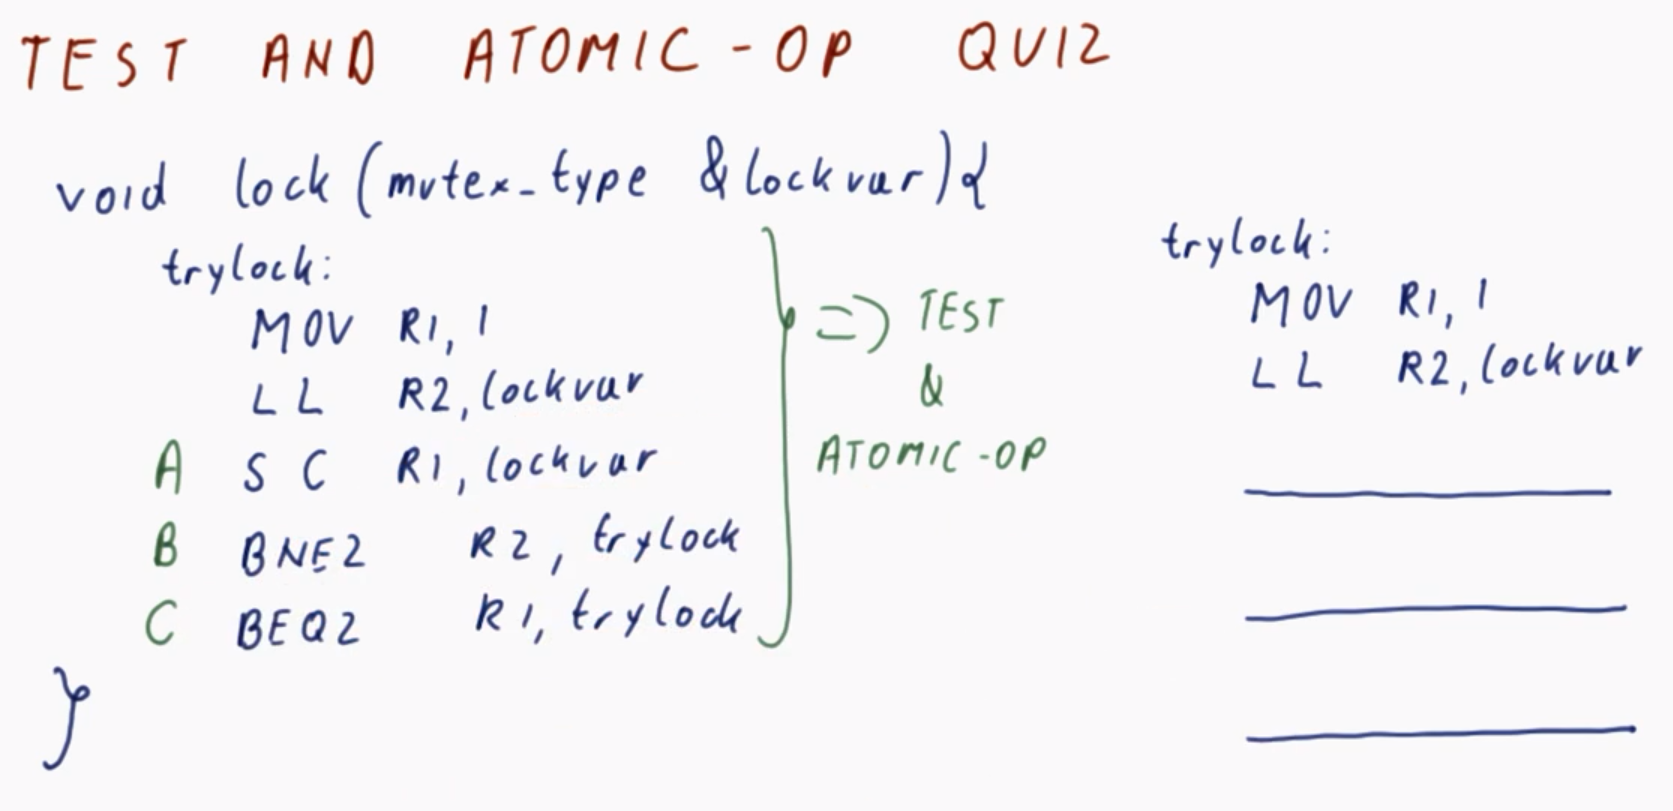 TEST AND ATOMIC-OP QUIZ
void lock (mutex_type &lockvar) {
trylock:
MOV R1, 1
LL R2, lockvar
A SC R1, lockvar
B BNEZ R2, trylock
C BEQZ R1, trylock
}
=> TEST
&
ATOMIC-OP
trylock:
MOV R1, 1
LL R2, lockvar